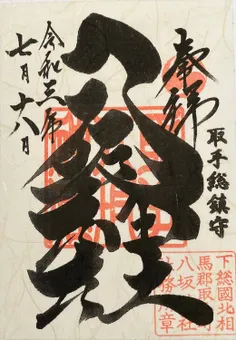 奉拝
取手総鎮守
八坂神社
令和三年
七月十八日
下総國北相
馬郡取
八坂社
務章